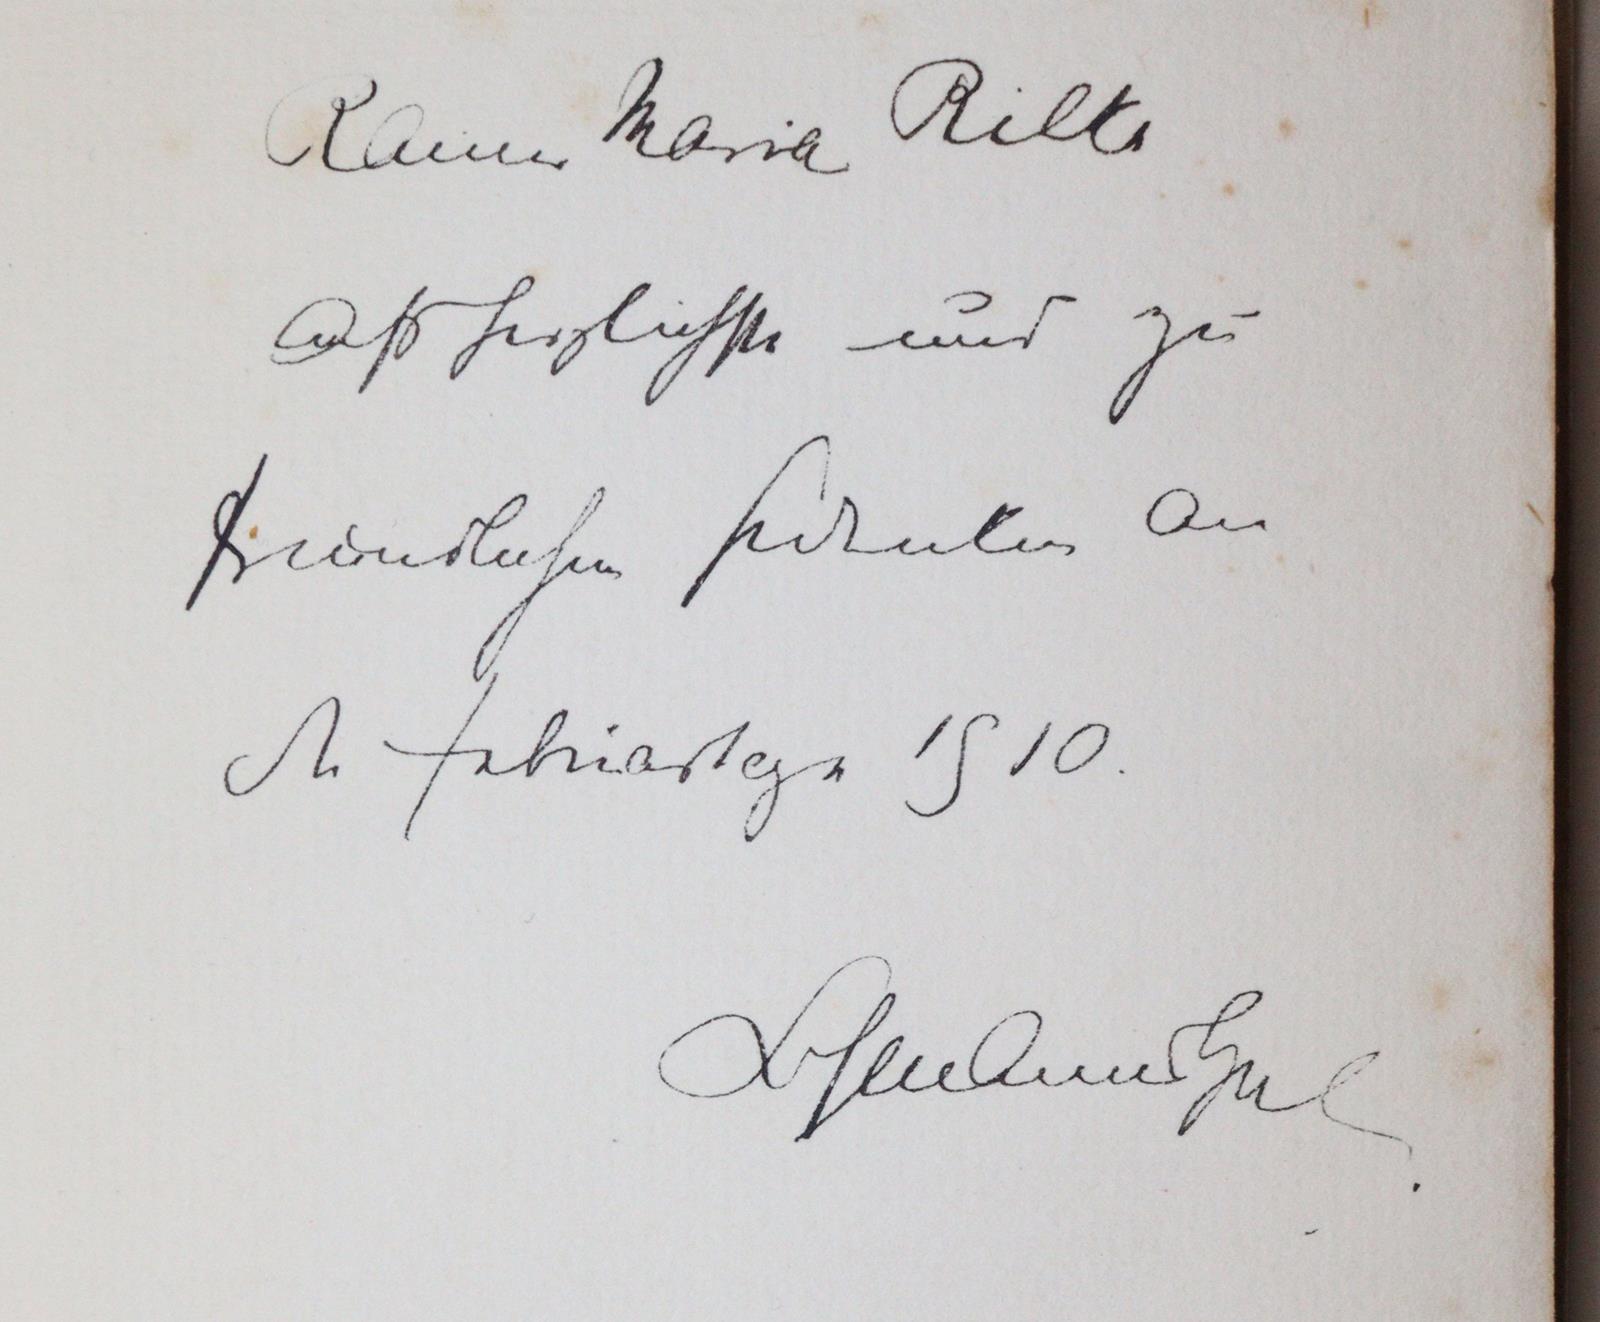 Rainer Maria Rilke
aufs herzlichste und zu
freundlichem Gedenken an
die Februartage 1910.